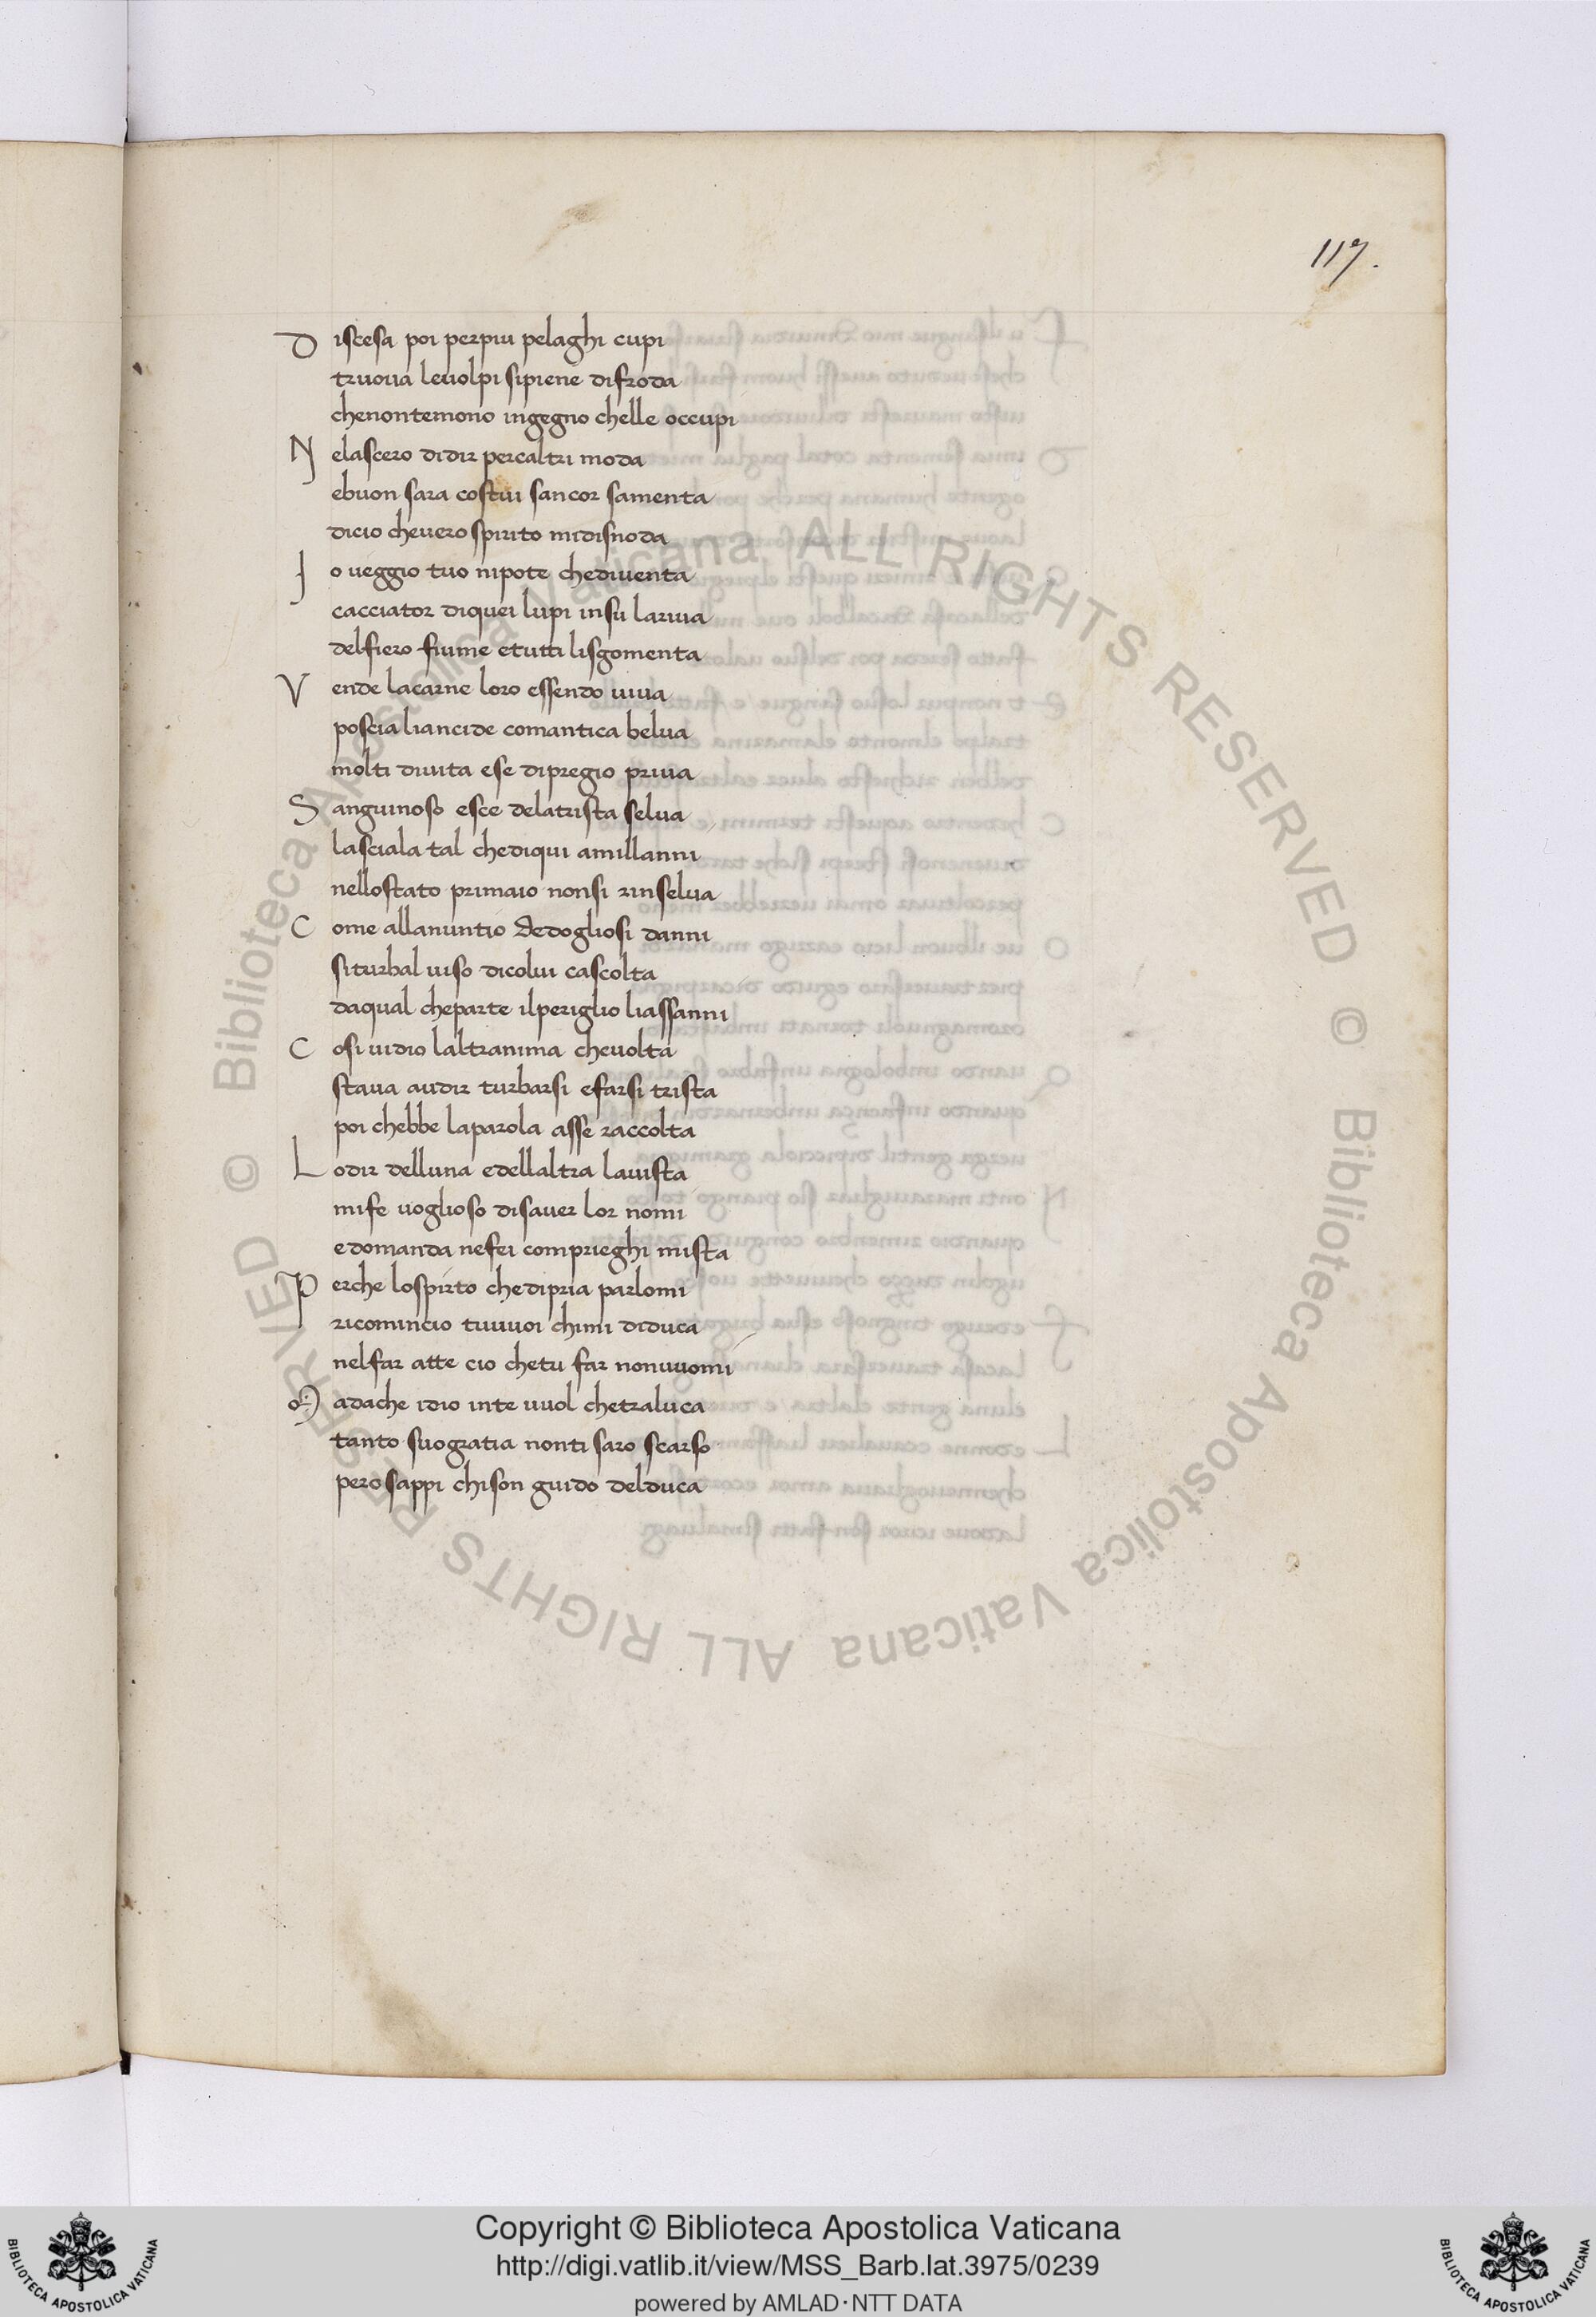 117.
D iscesa poi perpiu pelaghi cupi
truova levolpi sipiene difroda
chenontemono ingegno chelle occupi
N elascero didir percaltri moda
ebuon sara costui sancor samenta
dicio chevero spirito midisnoda
I o veggio tuo nipote chediventa
cacciator diquei lupi insu lariva
delfiero fiume etutti lisgomenta
V ende lacarne loro essendo viva
poscia liancide comantica belva
molti divita ese dipregio priva
S anguinoso esce delatrista selva
lasciala tal chediqui amillanni
nellostato primaio nonsi rinselva
C ome allanuntio dedogliosi danni
siturbal viso dicolui cascolta
daqual cheparte ilperiglio liassanni
C osi vidio laltranima chevolta
stava audir turbarsi efarsi trista
poi chebbe laparola asse raccolta
L odir delluna edellaltra lavista
mife voglioso disaver lor nomi
edomanda nefei comprieghi mista
P erche lospirto chedipria parlomi
ricomincio tuvuoi chimi diduca
nelfar atte cio chetu far nonvuomi
M adache idio inte vuol chetraluca
tanto suogratia nonti saro scarso
pero sappi chison guido delduca
© Biblioteca Apostolica Vaticana ALL RIGHTS RESERVED © Biblioteca Apostolica Vaticana ALL RIGHTS RESERVED
Copyright © Biblioteca Apostolica Vaticana
http://digi.vatlib.it/view/MSS_Barb.lat.3975/0239
powered by AMLAD·NTT DATA
BIBLIOTECA APOSTOLICA VATICANA
BIBLIOTECA APOSTOLICA VATICANA